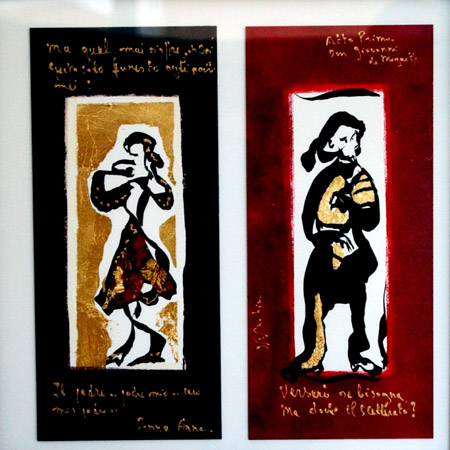 Ma qual mai s'offre.. o Dei
funesto agli
miei!
Il padre.. padre mio.. caro
mio padre..
Donna Anna.
Atto Primo
Don Giovanni
di Mozart
Verserò se bisogna
Ma dov'è il scellerato?